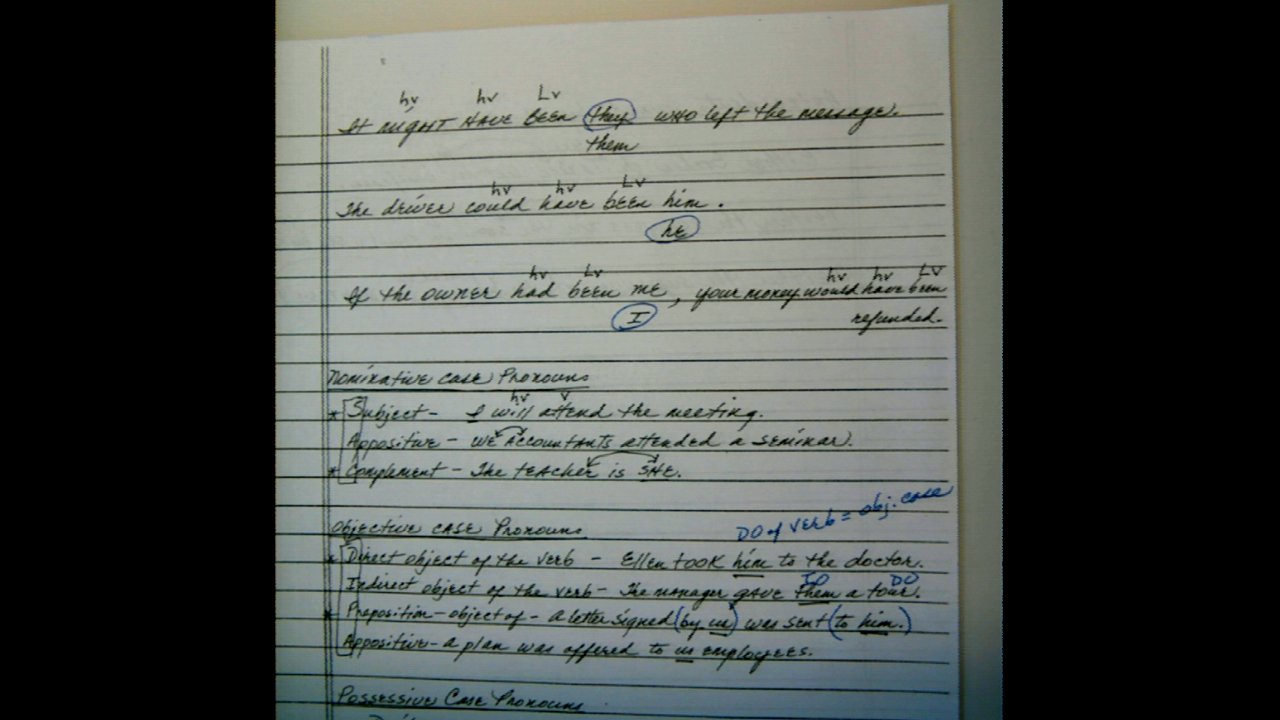 hv hv Lv
It might HAVE BEEN they who left the message.
them
hv hv Lv
The driver could have been him.
he
hv Lv hv hv LV
If the owner had been me, your money would have been
I refunded.
Nominative case Pronouns
hv v
* Subject - I will attend the meeting.
Appositive - WE Accountants attended a seminar.
* Complement - The teacher is SHE.
DO of verb = obj. case
Objective case Pronouns
* Direct object of the verb - Ellen took him to the doctor.
IO DO
Indirect object of the verb - The manager gave them a tour.
* Preposition - object of - A letter signed (by us) was sent (to him.)
Appositive - a plan was offered to us employees.
Possessive Case Pronouns